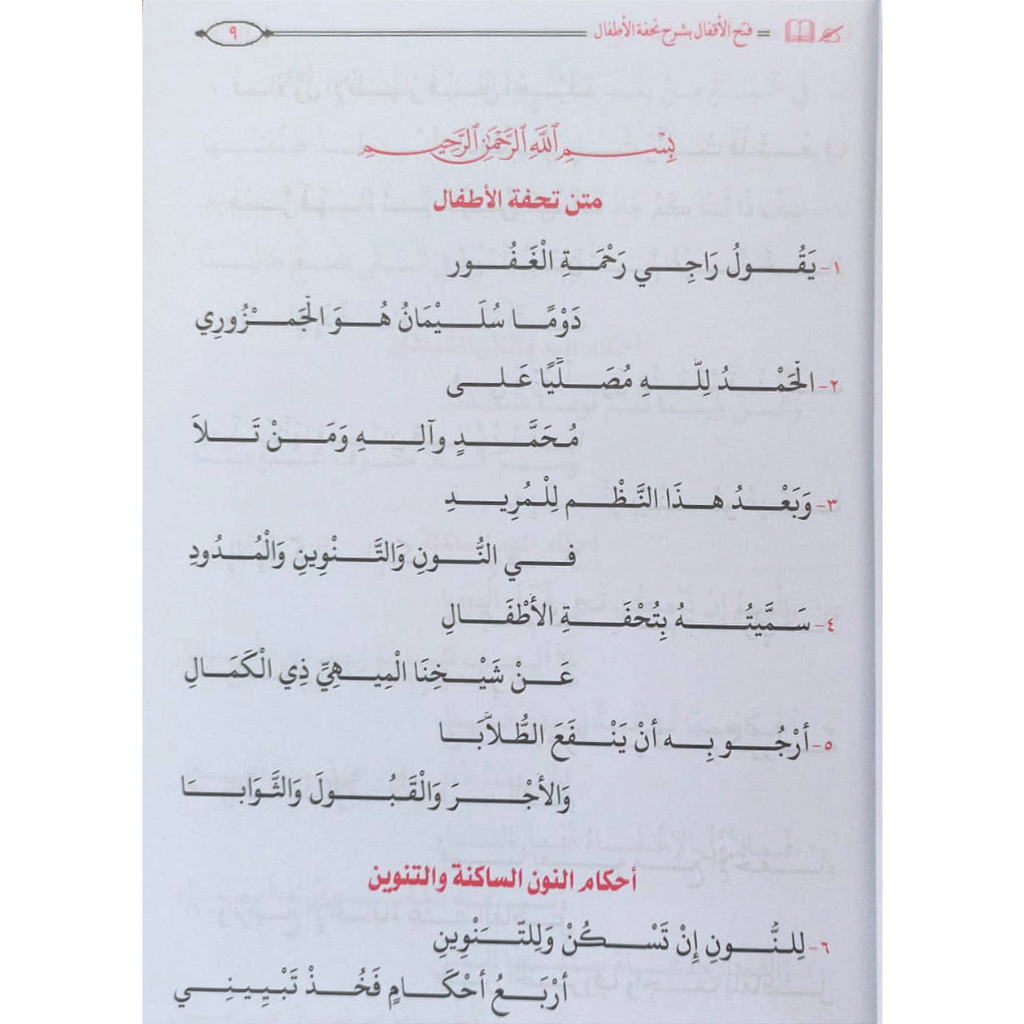 فتح الأقفال بشرح تحفة الأطفال ٩
بِسْمِ اللَّهِ الرَّحْمَٰنِ الرَّحِيمِ
متن تحفة الأطفال
١- يَقُولُ رَاجِي رَحْمَةِ الْغَفُور
دَوْمًا سُلَيْمَانُ هُوَ الْجَمْزُورِي
٢- الْحَمْدُ لِلَّهِ مُصَلِّيًا عَلَى
مُحَمَّدٍ وآلِهِ وَمَنْ تَلاَ
٣- وَبَعْدُ هذَا النَّظْم لِلْمُرِيدِ
فِي النُّونِ وَالتَّنْوِينِ وَالْمُدُودِ
٤- سَمَّيتُهُ بِتُحْفَةِ الأَطْفَالِ
عَنْ شَيْخِنَا الْمِيهِيِّ ذِي الْكَمَالِ
٥- أرْجُو بِه أنْ يَنْفَعَ الطُّلاَّبَا
وَالأجْرَ وَالْقَبُولَ وَالثَّوَابَا
أحكام النون الساكنة والتنوين
٦- لِلنُّونِ إنْ تَسْكُنْ وَلِلتَّنْوِينِ
أرْبَعُ أحْكَامٍ فَخُذْ تَبْيِينِي